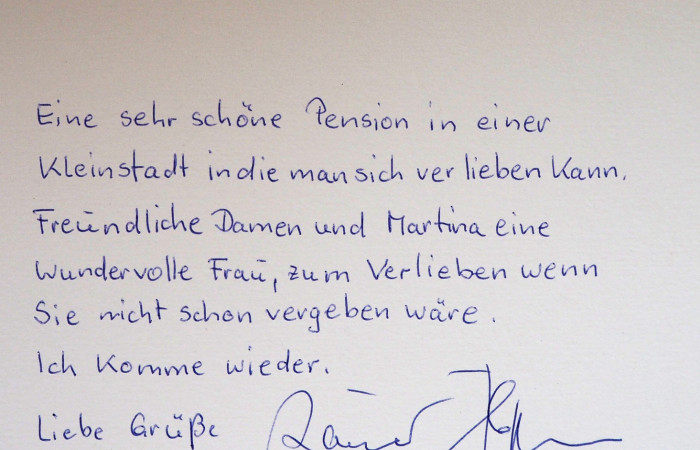 Eine sehr schöne Pension in einer
Kleinstadt in die man sich verlieben kann.
Freundliche Damen und Martina eine
wundervolle Frau, zum Verlieben wenn
Sie nicht schon vergeben wäre.
Ich komme wieder.
Liebe Grüße Rainer